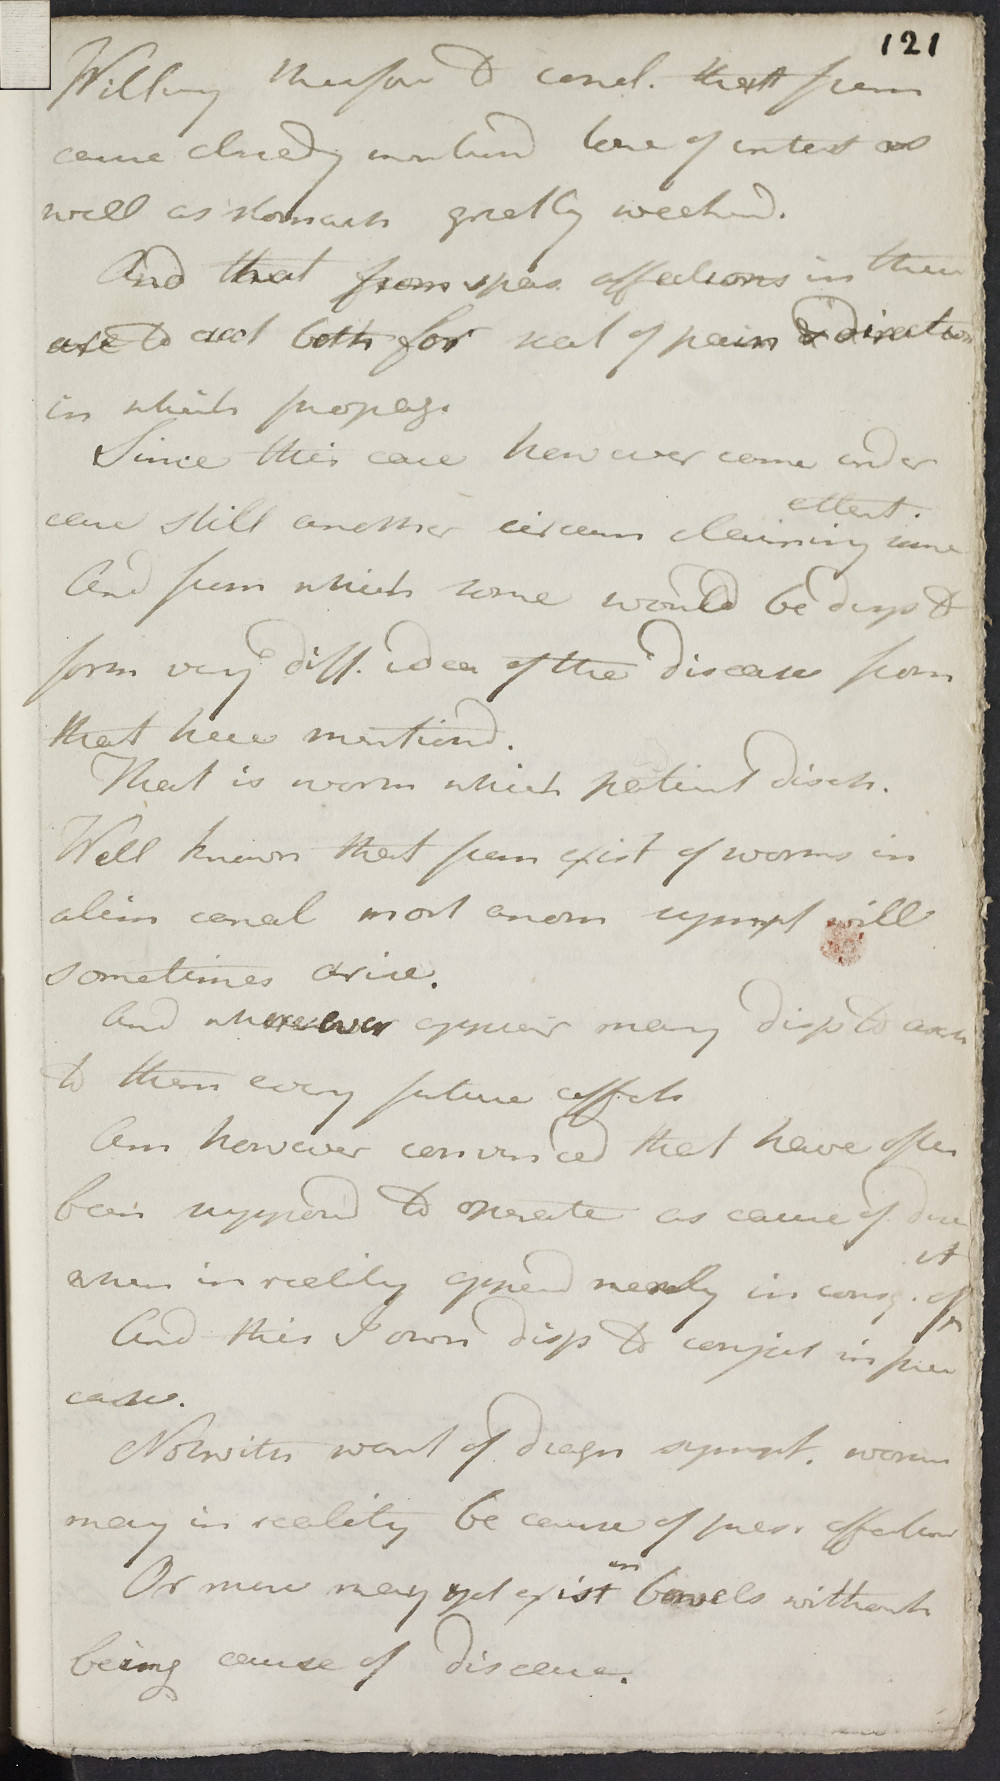 121
Willing therefore to concl. that from
cause already mentiond tone of intest as
well as stomach greatly weakend.
And that from spas. affections in them
are to acct both for seat of pain & direction
in which propag.
Since this case however came under
care still another circum claiming some
attent.
And from which some would be disps to
form very diff. idea of the disease from
that here mentiond.
That is worm which patient disch.
Well known that from exist of worms in
alim canal most anom sympt will
sometimes arise.
And wherever appear many disp to ascr
to them every future affect
Am however convinced that have often
been supposd to operate as cause of dise
when in reality appeard merely in conseq. of
it
And this I own disp to conject in pres
case.
Notwith want of diagn sympt. worms
may in reality be cause of pres. affection
Or more may yet exist in bowels without
being cause of disease.